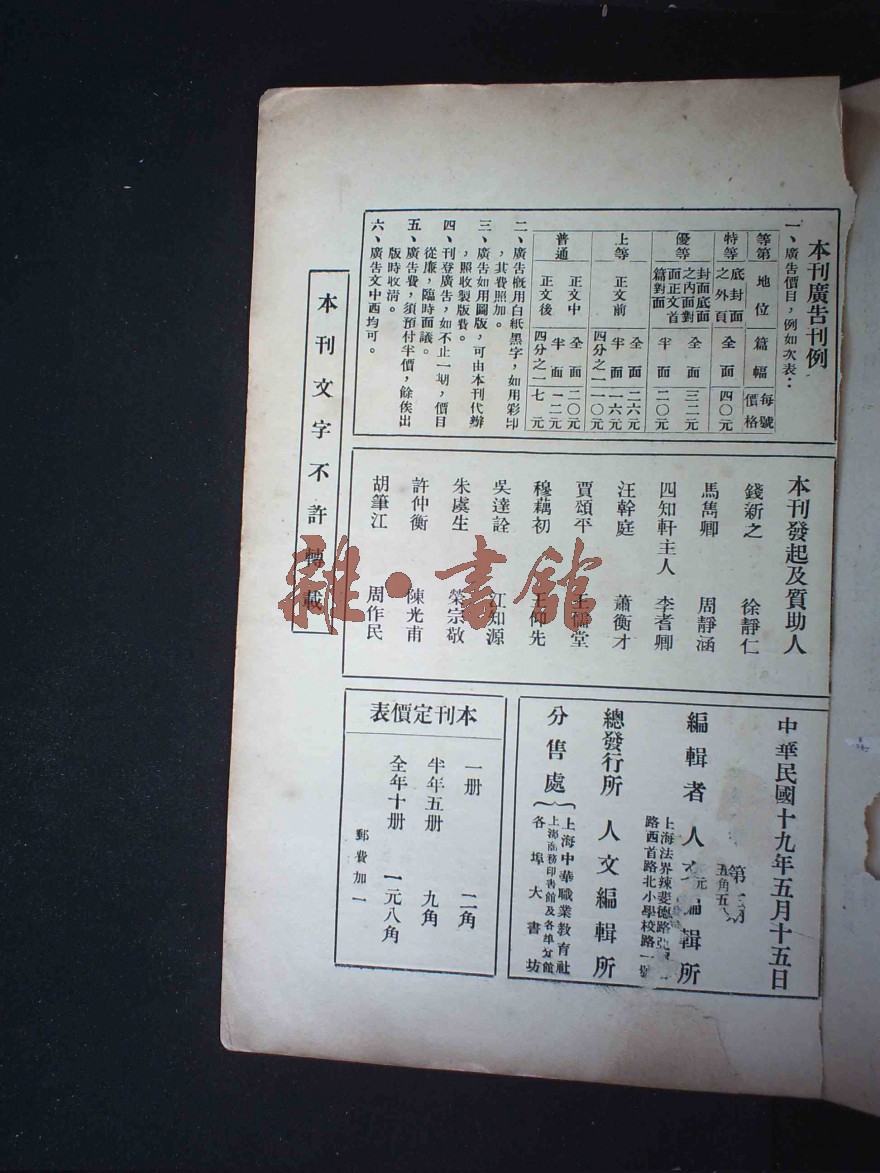 本刊廣告刊例
一、廣告價目，例如次表：
等第 地位 篇幅 每號價格
特等 底封面之外頁 全面 四〇元
優等 封面底面之內面對面正文首篇對面 全面 三二元
半面 二〇元
上等 正文前 全面 二六元
半面 一六元
四分之一 一〇元
普通 正文中 正文後 全面 二〇元
半面 一二元
四分之一 七元
二、廣告概用白紙黑字，如用彩印
，其費照加。
三、廣告如用圖版，可由本刊代辦
，照收製版費。
四、刊登廣告，如不止一期，價目
從廉，臨時面議。
五、廣告費，須預付半價，餘俟出
版時收清。
六、廣告文中西均可。
本刊發起及質助人
錢新之 徐靜仁
馬雋卿 周靜涵
四知軒主人 李耆卿
汪幹庭 蕭衡才
賈頌平 王儒堂
穆藕初 王仰先
吳達詮 江知源
朱虞生 榮宗敬
許仲衡 陳光甫
胡筆江 周作民
中華民國十九年五月十五日
第 期
編輯者 人文編輯所
上海法界辣斐德路亞
路西首路北小學校路一號
總發行所 人文編輯所
分售處
上海中華職業教育社
上海商務印書館及各埠分館
各埠大書坊
本刊定價表
一册 二角
半年五册 九角
全年十册 一元八角
郵費加一
本刊文字不許轉載
雜·書館